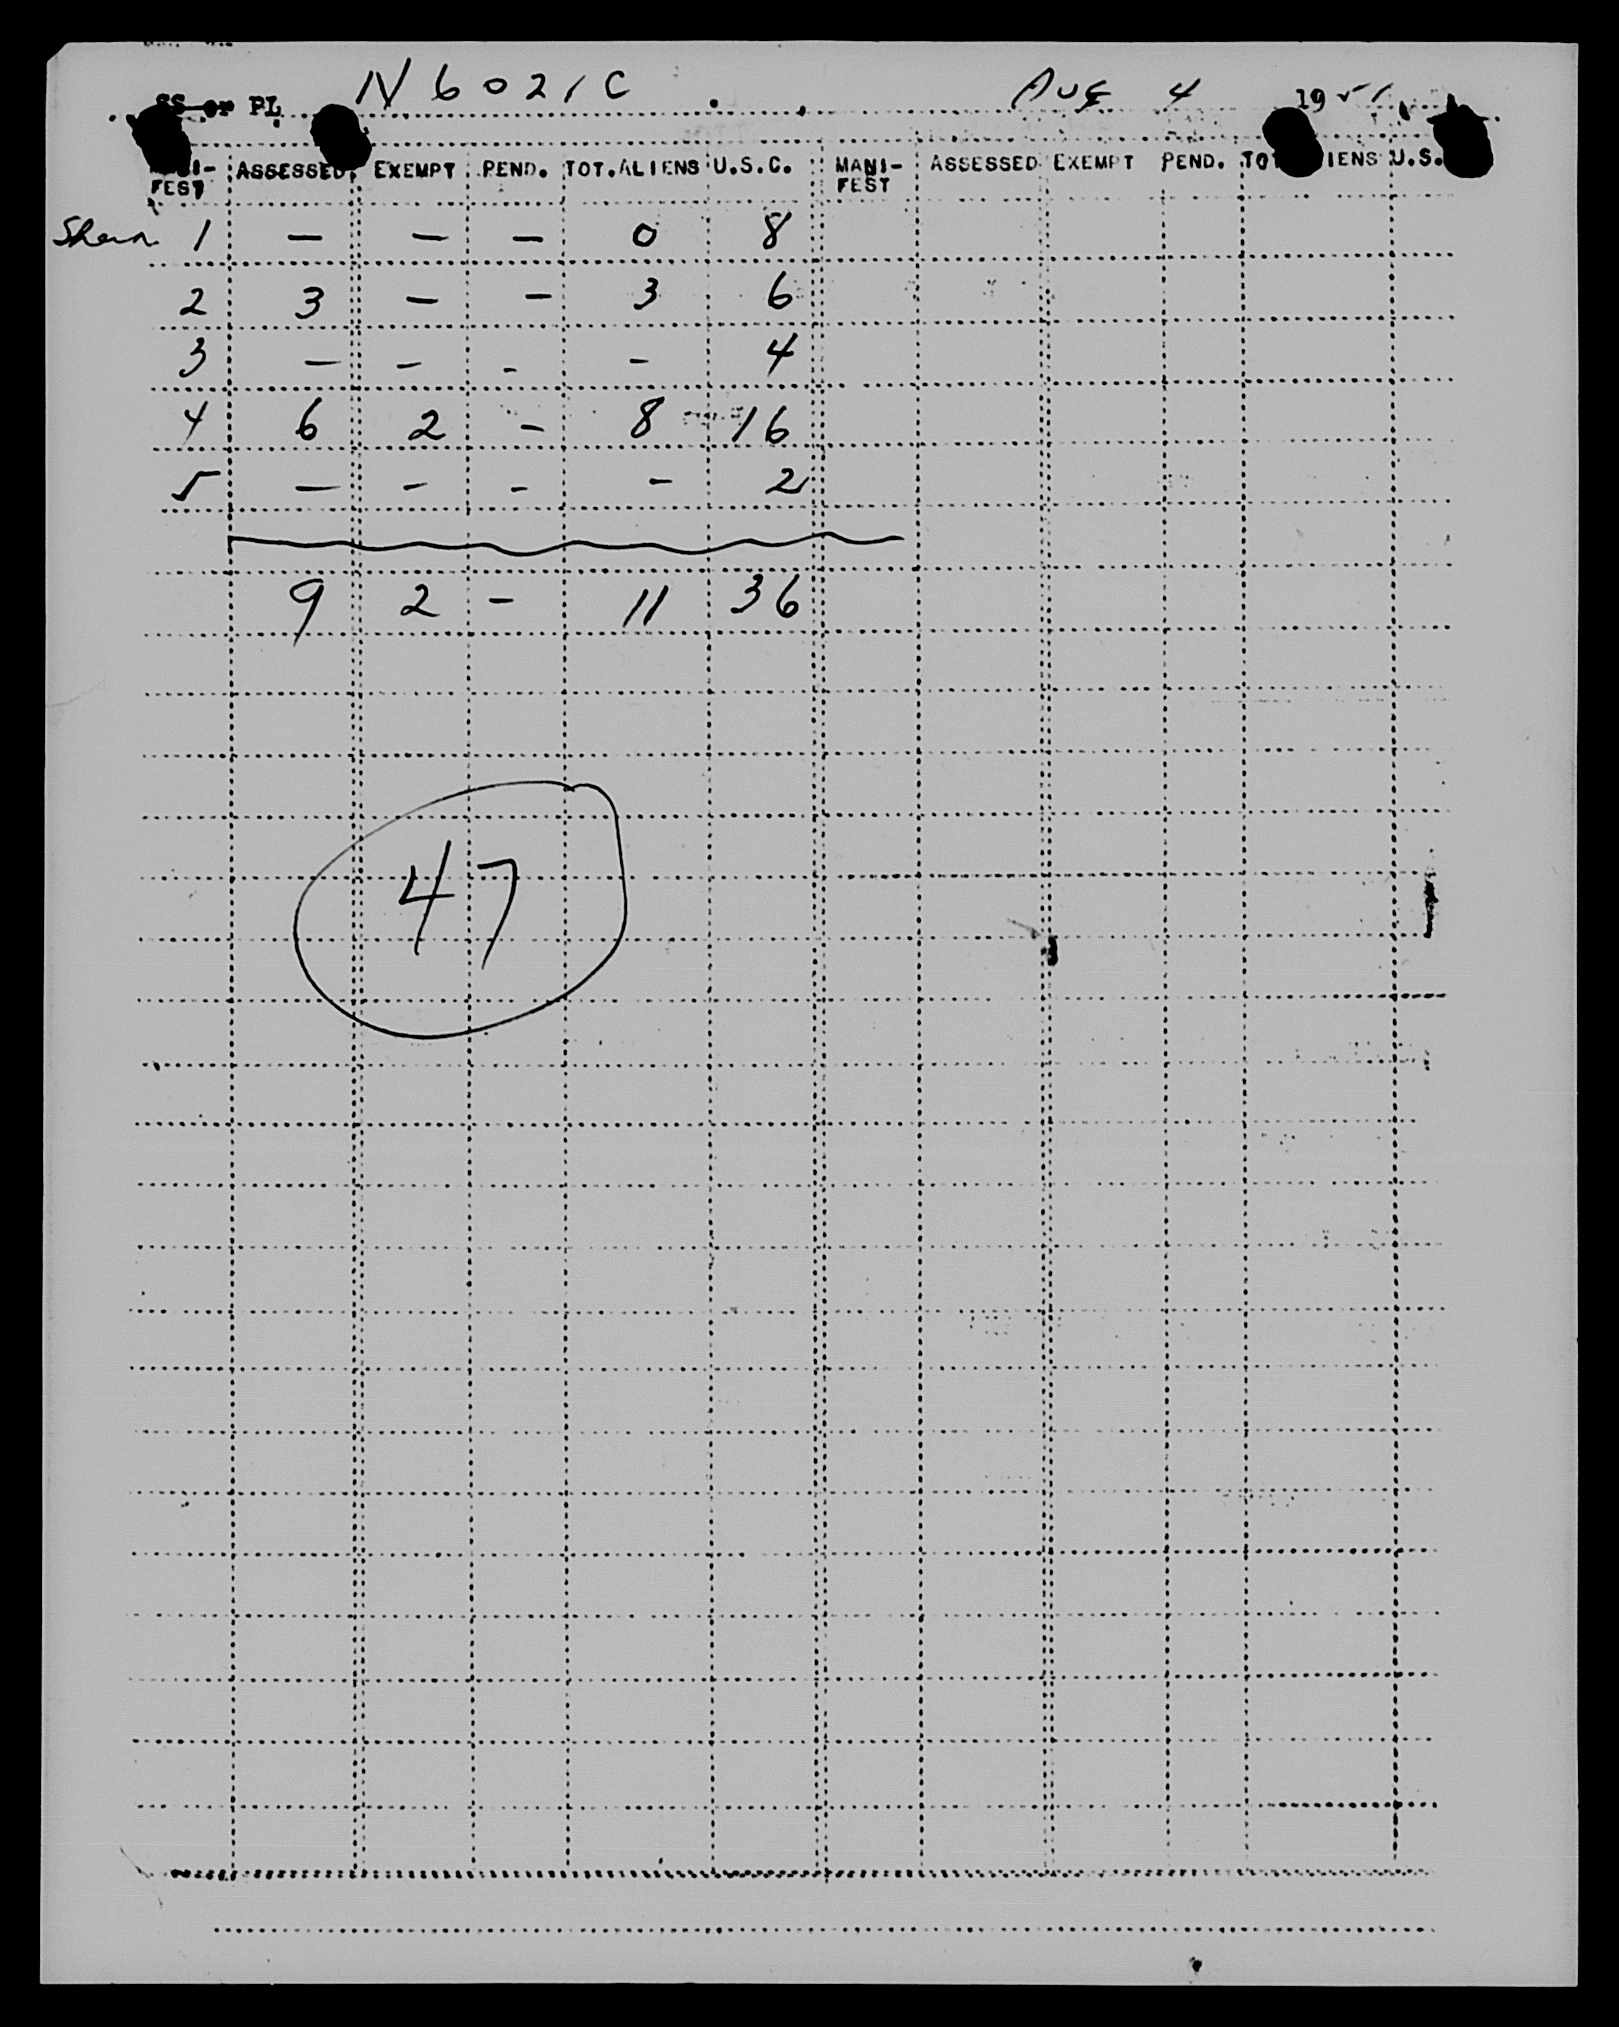 SS or PL N6021C Aug 4 1951
ASSESSED EXEMPT PEND. TOT.ALIENS U.S.C. MANI- ASSESSED EXEMPT PEND. U.S.
FEST FEST
1 — — — 0 8
2 3 — — 3 6
3 — — - - 4
4 6 2 - 8 16
5 — - - - 2
9 2 - 11 36
47